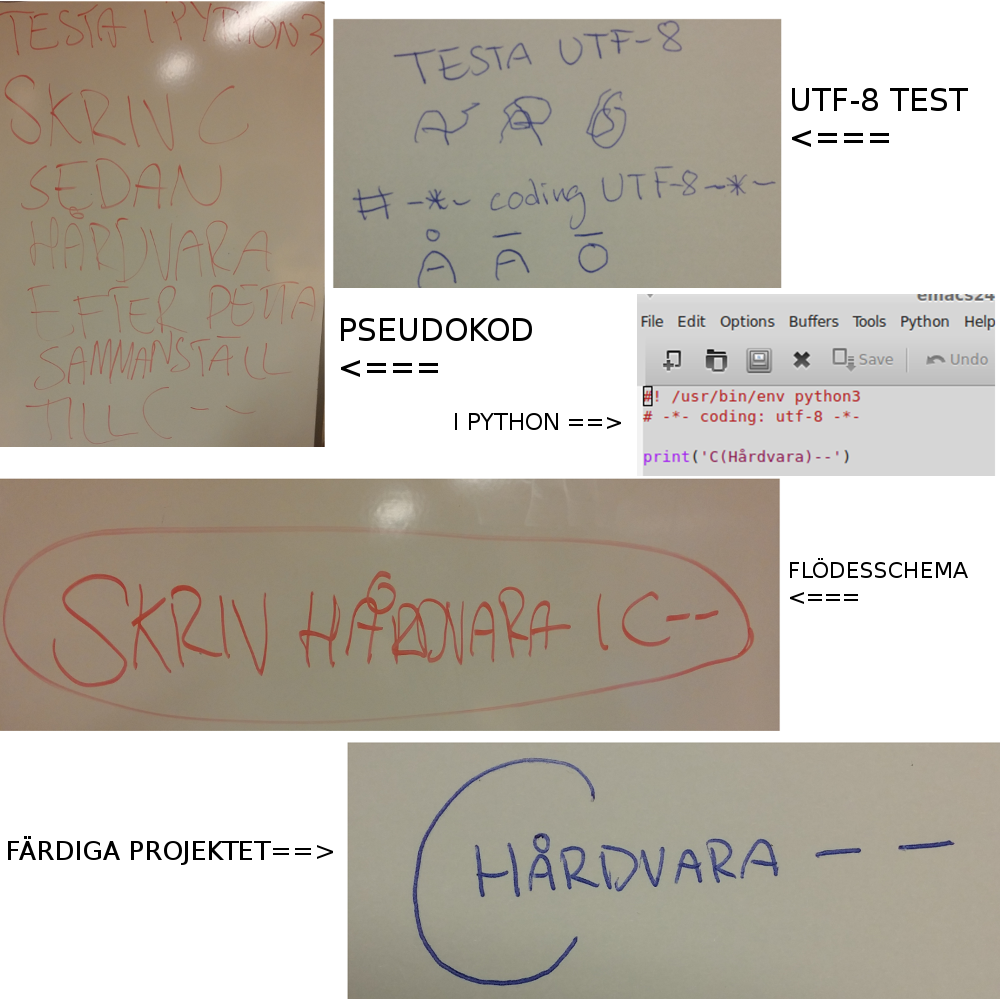 TESTA I PYTHON3
SKRIV C
SEDAN
HÅRDVARA
EFTER DETTA
SAMMANSTÄLL
TILL C --
TESTA UTF-8
# -*- coding UTF-8 -*-
Å Ā Ō
UTF-8 TEST
<===
PSEUDOKOD
<===
I PYTHON ==>
emacs24
File Edit Options Buffers Tools Python Help
Save Undo
#! /usr/bin/env python3
# -*- coding: utf-8 -*-
print('C(Hårdvara)--')
SKRIV HÅRDVARA I C--
FLÖDESSCHEMA
<===
FÄRDIGA PROJEKTET==>
C HÅRDVARA --